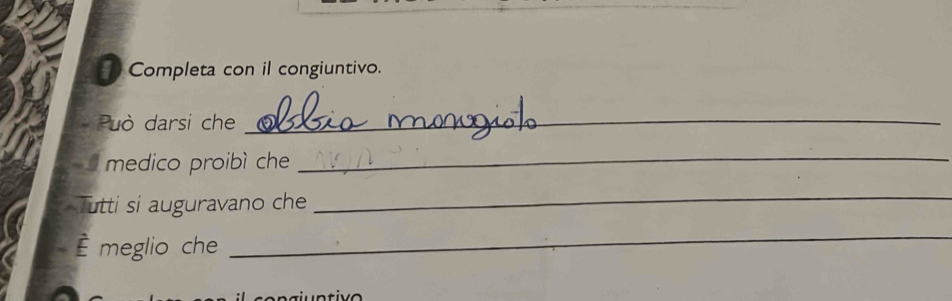 Completa con il congiuntivo.
Può darsi che abbia mangiato
Il medico proibì che
Tutti si auguravano che
È meglio che